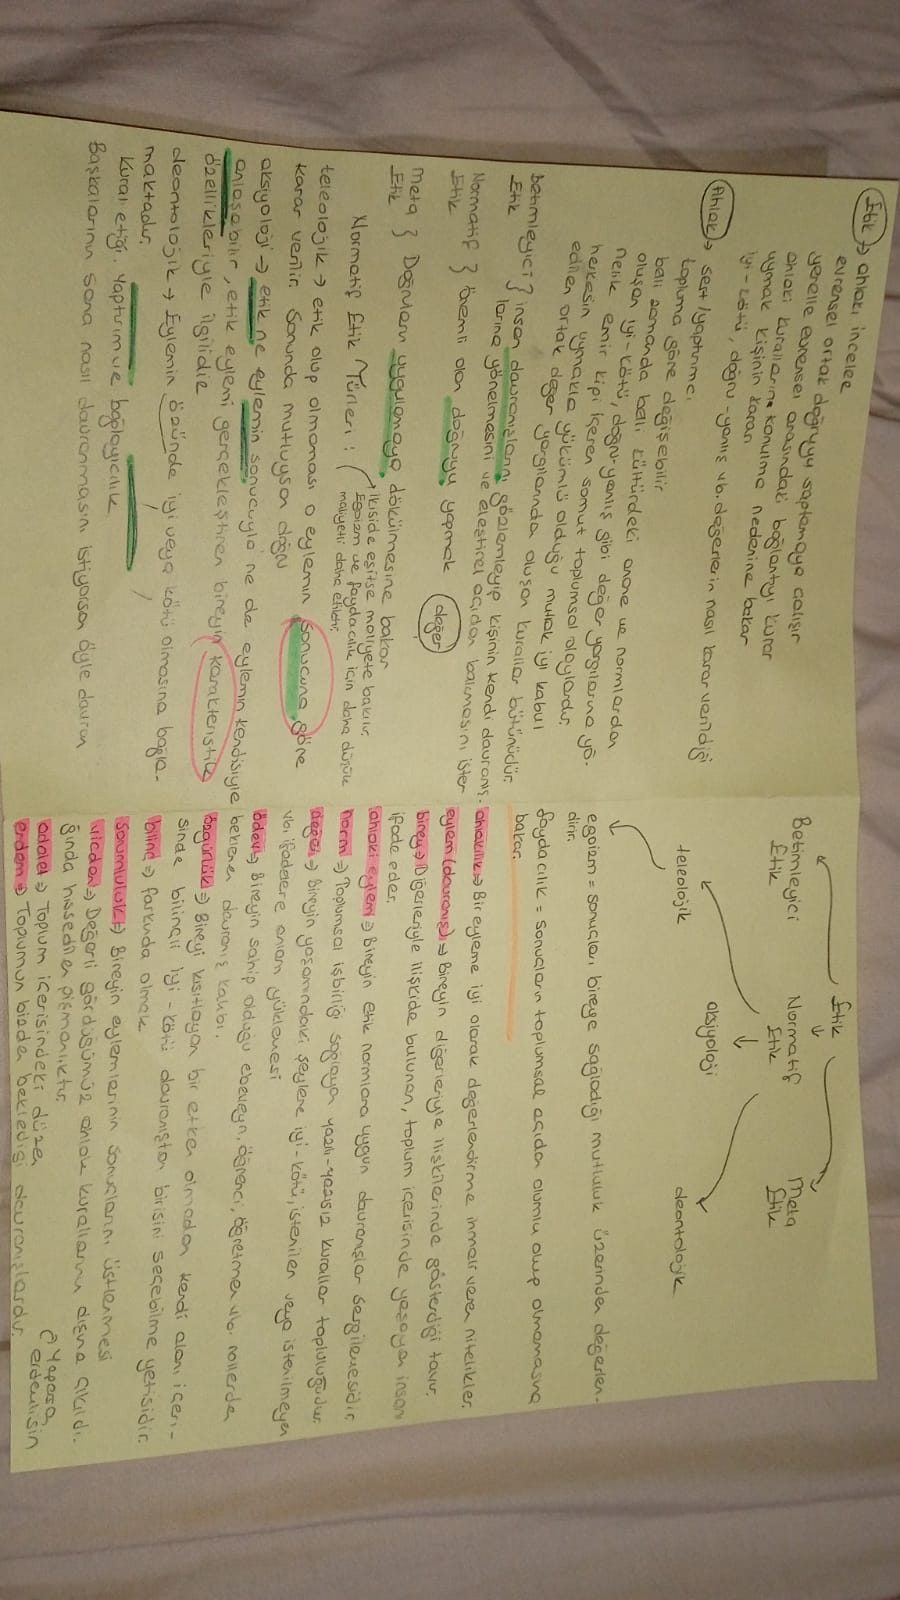 Etik → ahlakı inceler
evrensel ortak doğruyu saptamaya çalışır
yerelle evrensel arasındaki bağlantıyı kurar
ahlaki kuralların konulma nedenine bakar
uymak kişinin kararı
iyi-kötü, doğru-yanlış vb. değerlerin nasıl karar verildiği
Ahlak → sert/yaptırımcı
topluma göre değişebilir
belli zamanda belli kültürdeki anane ve normlardan
oluşan iyi-kötü, doğru-yanlış gibi değer yargılarına yö-
nelik emir kipi içeren somut toplumsal olaylardır.
herkesin uymakla yükümlü olduğu mutlak iyi kabul
edilen ortak değer yargılarından oluşan kurallar bütünüdür.
betimleyici } insan davranışlarını gözlemleyip kişinin kendi davranış-
Etik } larına yönelmesini ve eleştirel açıdan bakmasını ister
Normatif } önemli olan doğruyu yapmak değer
Etik
meta } Doğruların uygulamaya dökülmesine bakar
Etik
Normatif Etik Türleri:
ikiside eşitse maliyete bakılır,
Egoizm ve faydacılık için daha düşük
maliyetli daha etiktir.
teleolojik → etik olup olmaması o eylemin sonucuna göre
karar verilir. Sonunda mutluysan doğru
aksiyoloji → etik ne eylemin sonucuyla ne de eylemin kendisiyle
anlaşabilir, etik eylemi gerçekleştiren bireyin karakteristik
özellikleriyle ilgilidir
deontolojik → Eylemin özünde iyi veya kötü olmasına bağla-
maktadır.
kural etiği. yaptırım ve bağlayıcılık
Başkalarının sana nasıl davranmasını istiyorsan öyle davran
Etik
Betimleyici Normatif Meta
Etik Etik Etik
teleolojik aksiyoloji deontolojik
egoizm = sonuçları bireye sağladığı mutluluk üzerinden değerlen-
dirir.
faydacılık = sonuçların toplumsal açıdan olumlu olup olmamasına
bakar.
ahlakilik => Bir eyleme iyi olarak değerlendirme veren nitelikler.
eylem (davranış) => Bireyin diğerleriyle ilişkilerinde gösterdiği tavır.
birey => Diğerleriyle ilişkide bulunan, toplum içerisinde yaşayan insanı
ifade eder.
ahlaki eylem => Bireyin etik normlara uygun davranışlar sergilemesidir.
norm => Toplumsal işbirliği sağlayan yazılı-yazısız kurallar topluluğudur.
değer => Bireyin yaşamındaki şeylere iyi-kötü, istenilen veya istenilmeyen
vb. ifadelere anlam yüklemesi
ödev => Bireyin sahip olduğu ebeveyn, öğrenci, öğretmen vb. rollerden
beklenen davranış kalıbı.
özgürlük => Bireyi kısıtlayan bir etken olmadan kendi alanı içeri-
sinde bilinçli iyi-kötü davranıştan birisini seçebilme yetisidir.
bilinç => farkında olmak
sorumluluk => Bireyin eylemlerinin sonuçlarını üstlenmesi
vicdan => Değerli gördüğümüz ahlak kurallarının dışına çıkıldı-
ğında hissedilen pişmanlıktır.
adalet => Toplum içerisindeki düzen
erdem => Toplumun bizden beklediği davranışlardır.
yaparsan
erdemlisin